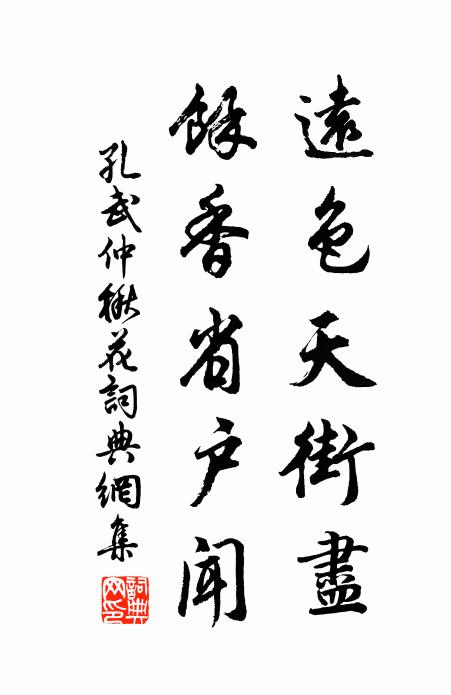 遠色天街盡
餘香省户闻
孔武仲楸花詞典網集
詞典网印